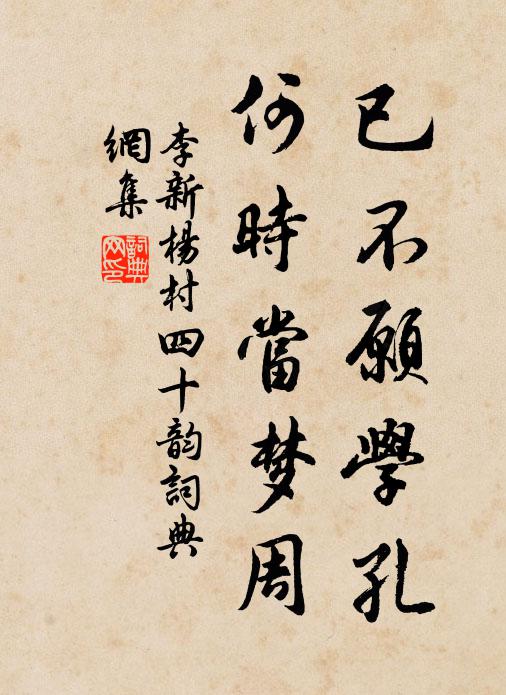 已不願學孔
何時當梦周
李新楊村四十韵詞典
網集
詞典
网印